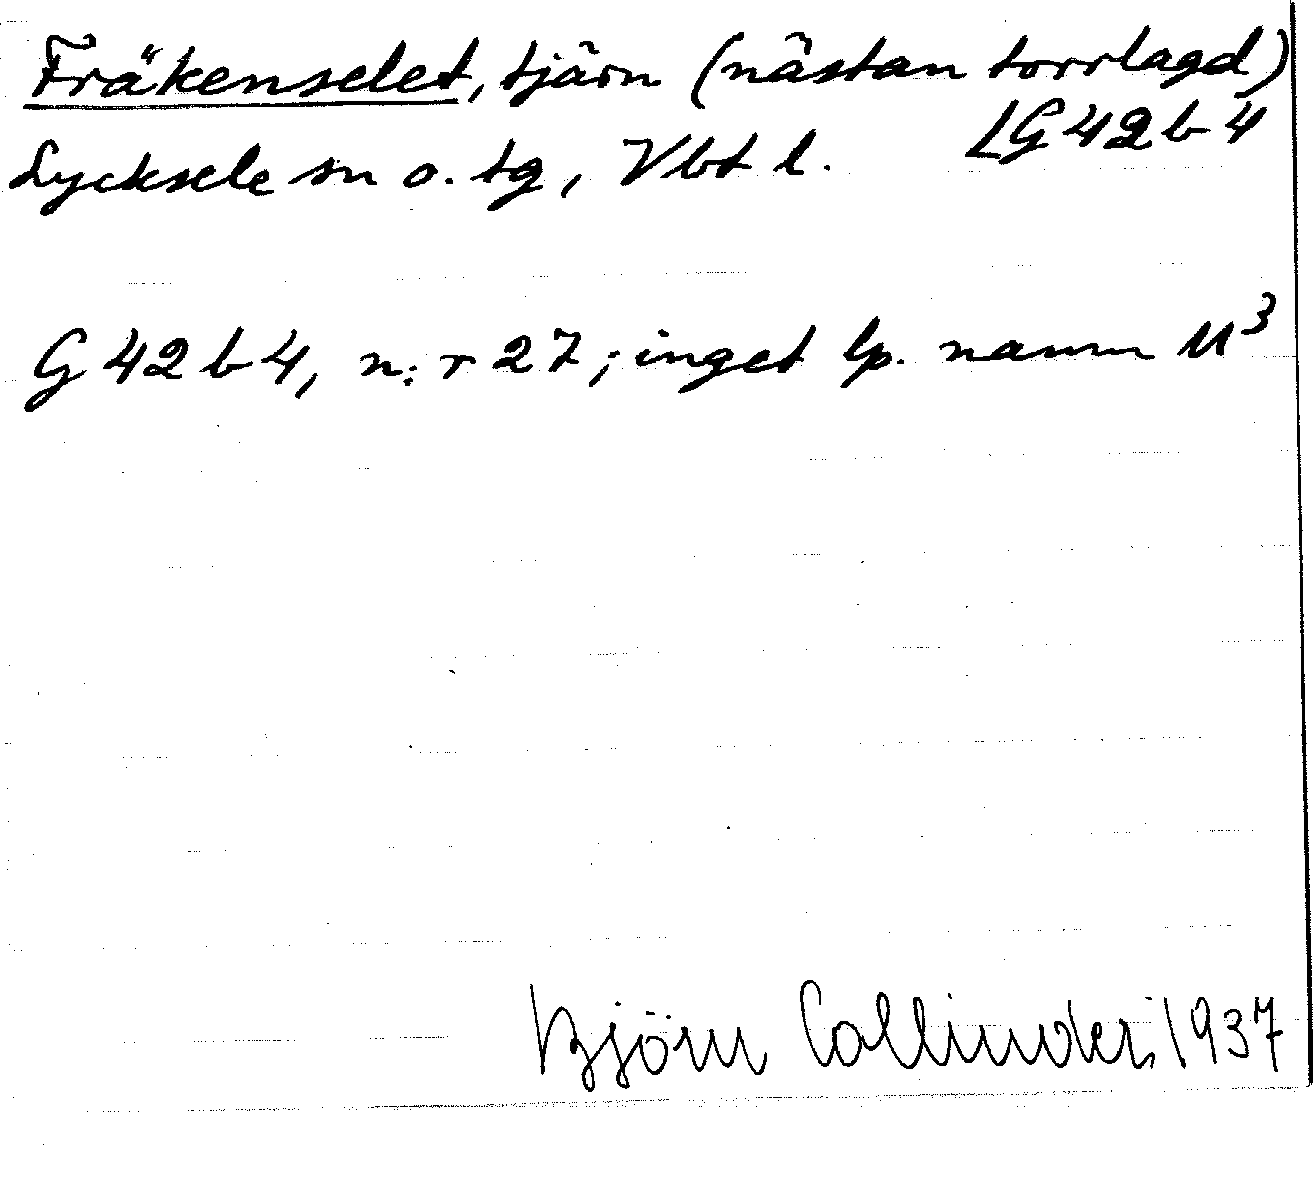 Fräkenselet, tjärn (nästan torrlagd)
LG42b4
Lycksele sn o. tg, Vbt l.
G42b4, n:r 27; inget lp. namn M³
Björn Collinder 1937